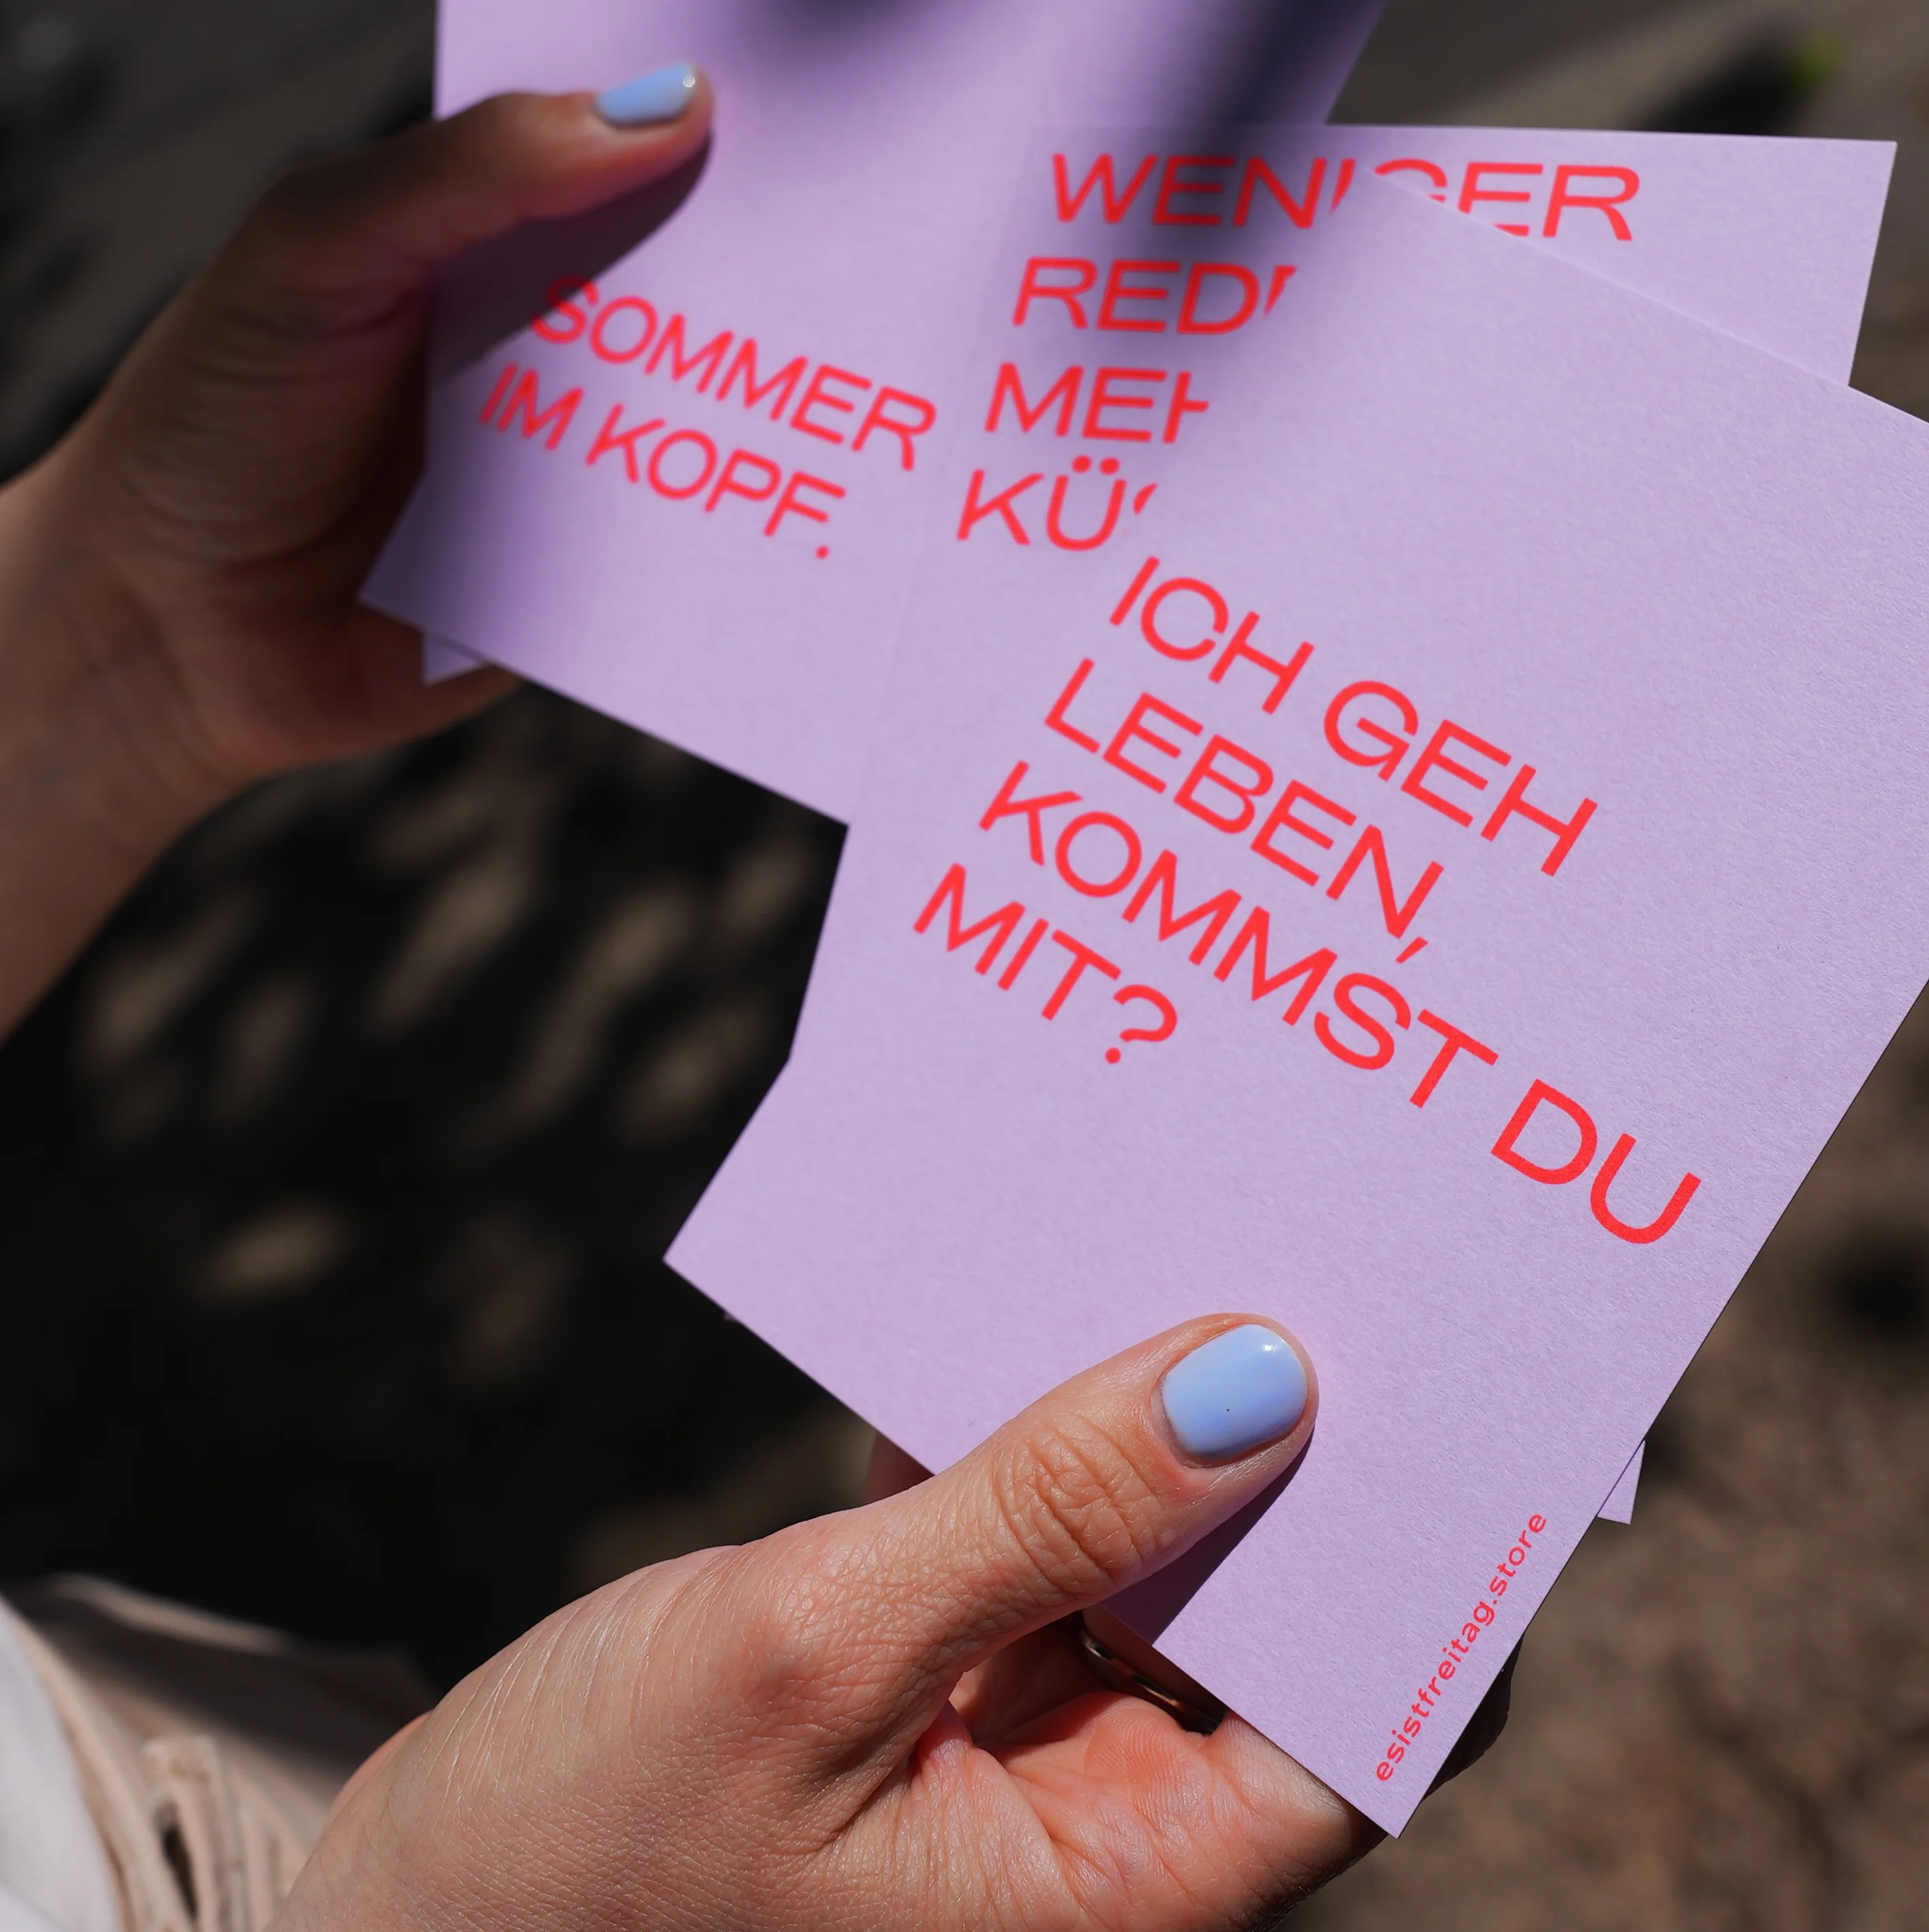 SOMMER
IM KOPF.
WENIGER
ICH GEH
LEBEN,
KOMMST DU
MIT?
esistfreitag.store